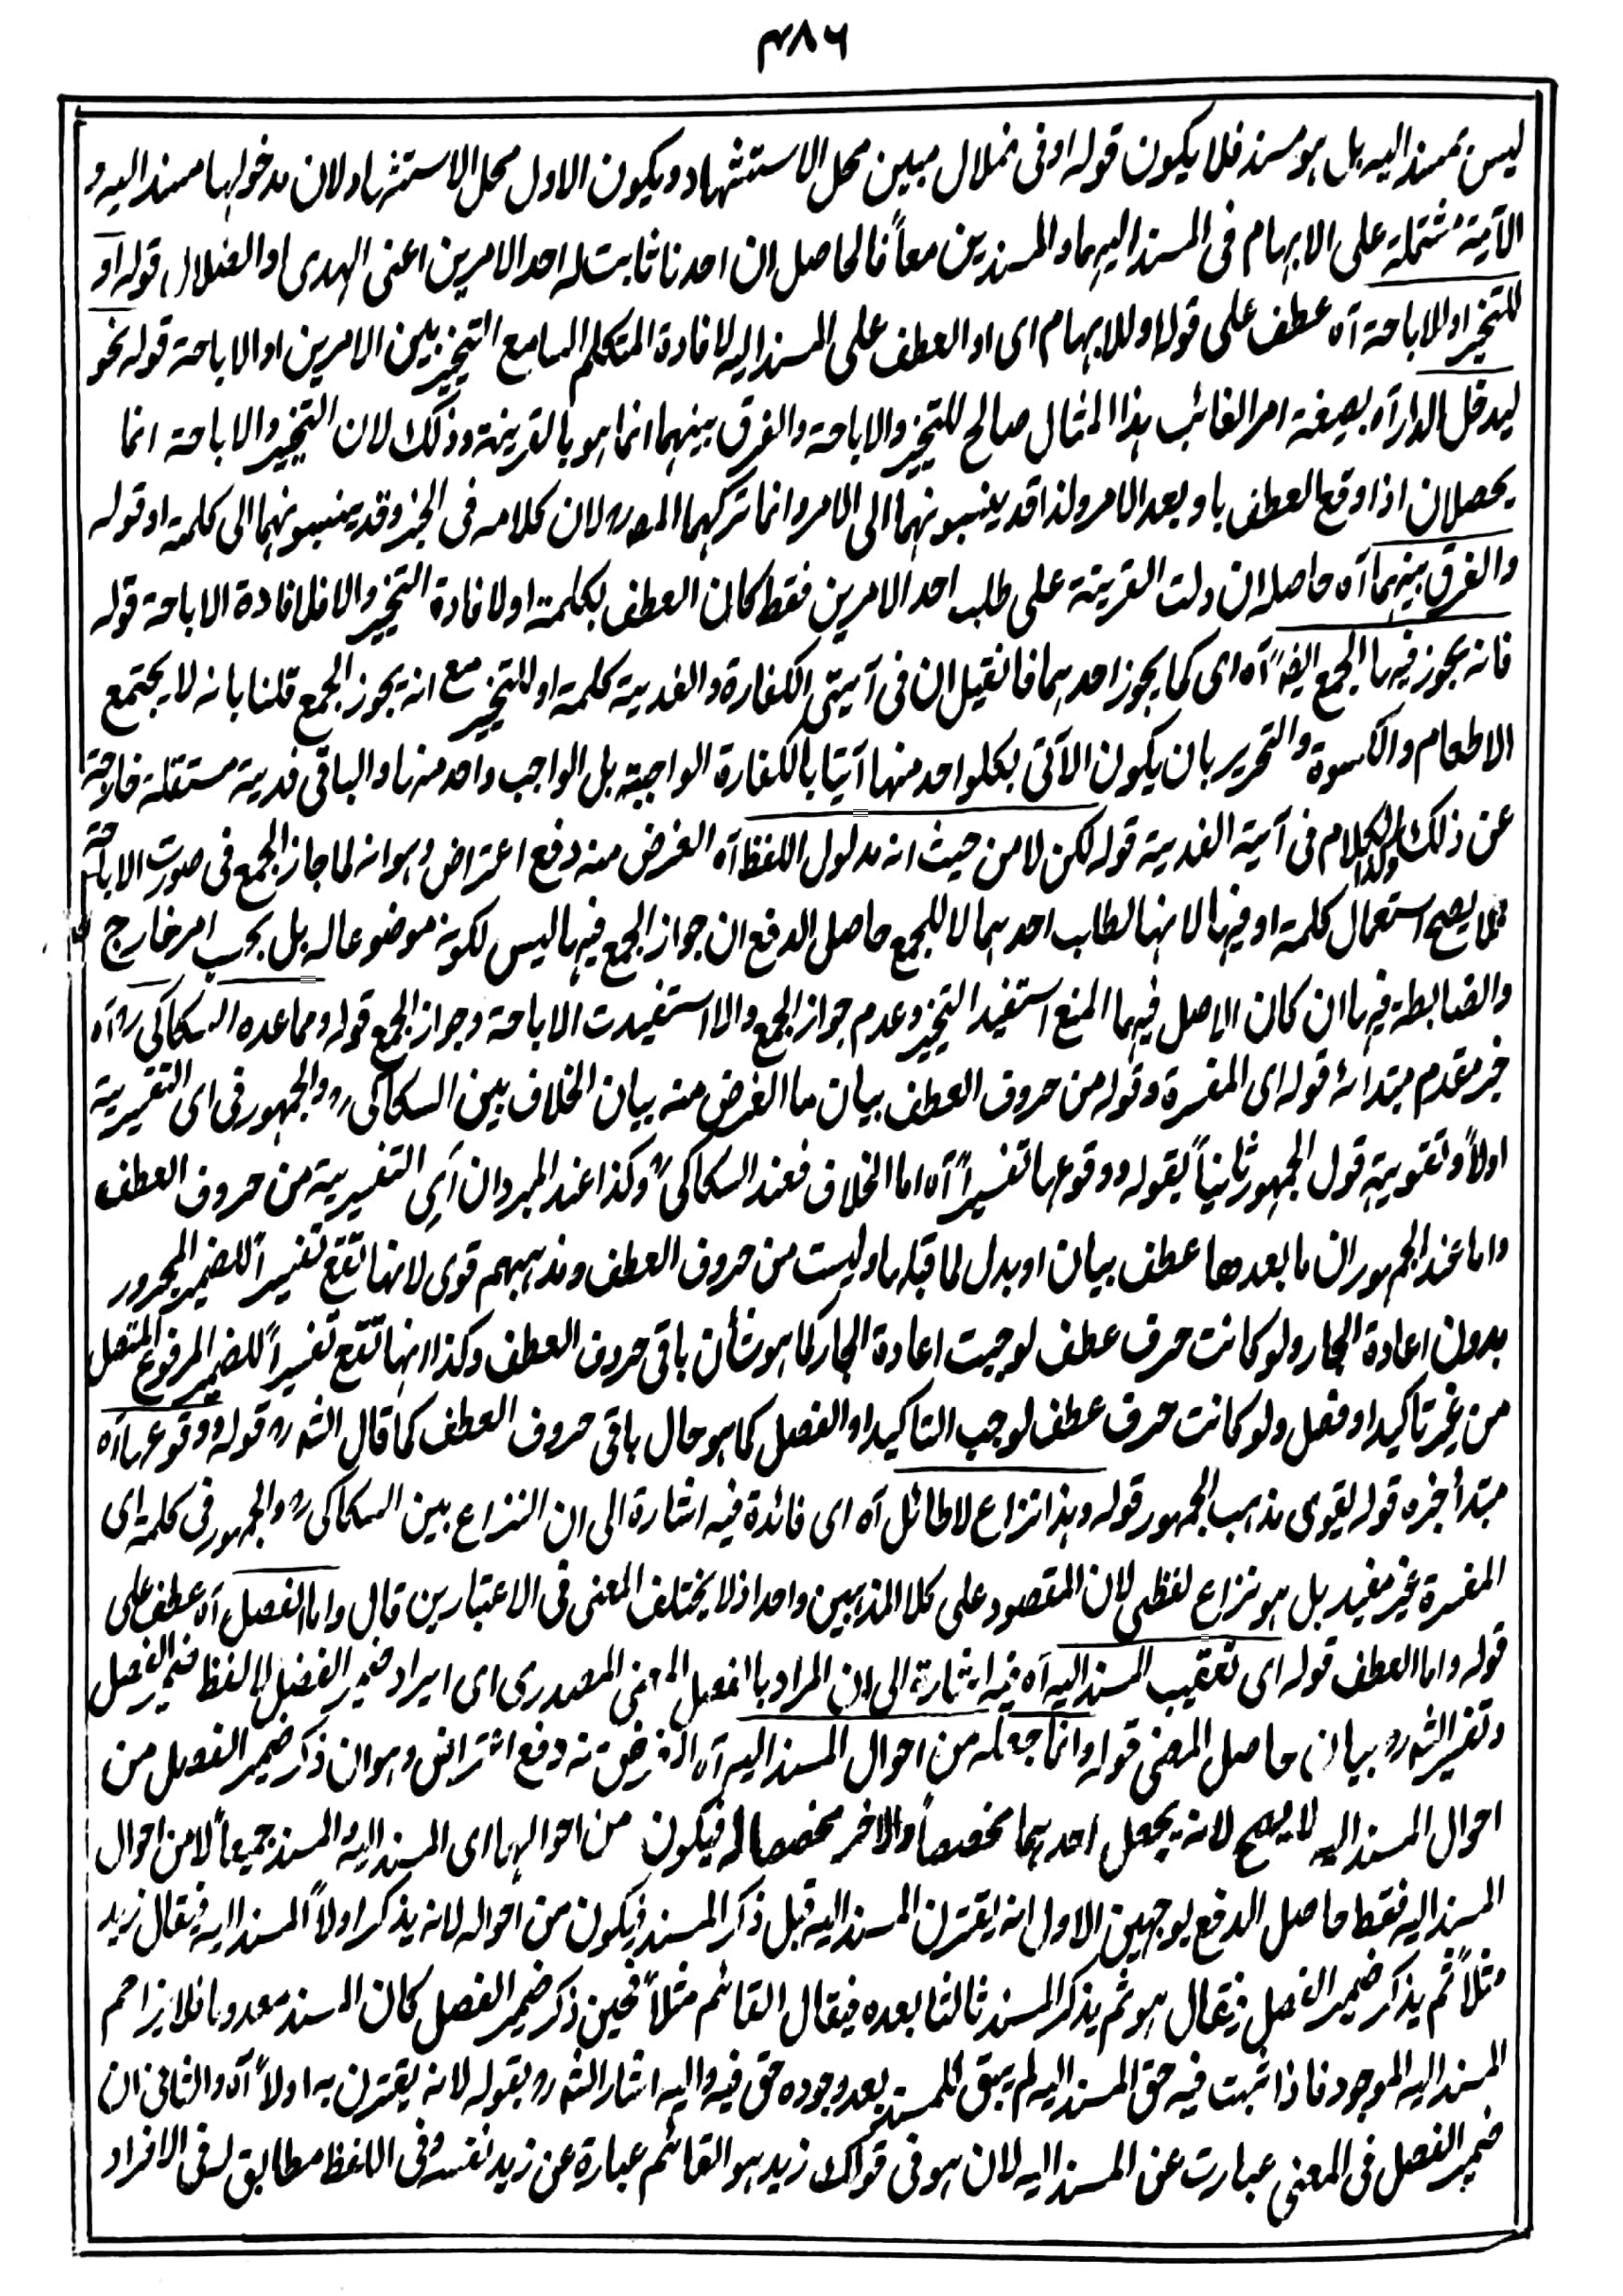 ٣٨٦
ليس بمسند اليه بل هو مسند فلا يكون قوله او فى ضلال مبين محل الاستشهاد ويكون الاول محل الاستشهاد لان مدخولها مسند اليه و
الآية مشتملة على الابهام فى المسند اليهما والمسندين معاً فالحاصل ان احدنا ثابت له احد الامرين اعنى الهدى او الضلال قوله او
للتخيير او للاباحة آه عطف على قوله او للابهام اى او العطف على المسند اليه لافادة المتكلم السامع التخيير بين الامرين او الاباحة قوله نحو
ليدخل الدار آه بصيغة امر الغائب هذا المثال صالح للتخيير والاباحة والفرق بينهما انما هو بالقرينة وذلك لان التخيير والاباحة انما
يحصلان اذا وقع العطف باو بعد الامر ولذا قد ينسبونهما الى الامر وانما تركهما المصرح لان كلامه فى الخبر وقد ينسبونهما الى كلمة او قوله
والفرق بينهما آه حاصله ان دلت القرينة على طلب احد الامرين فقط كان العطف بكلمة او لافادة التخيير والا فلافادة الاباحة قوله
فانه يجوز فيها الجمع ايضاً آه اى كما يجوز احدهما فانقيل ان فى آيتى الكفارة والفدية كلمة او للتخيير مع انه يجوز الجمع قلنا بانه لا يجتمع
الاطعام والكسوة والتحرير بان يكون الآتى بكلواحد منها آتيا بالكفارة الواجبة بل الواجب واحد منها والباقى فدية مستقلة خارجة
عن ذلك وكذا الكلام فى آية الفدية قوله لكن لا من حيث انه مدلول اللفظ آه الغرض منه دفع اعتراض وهو انه لما جاز الجمع فى صورت الاباحة
فلا يصح استعمال كلمة او فيها لانها لطلب احدهما لا للجمع حاصل الدفع ان جواز الجمع فيها ليس لكونه موضوعا له بل بحسب امر خارج
والضابطة فيها ان كان الاصل فيهما المنع استفيد التخيير وعدم جواز الجمع والا استفيدت الاباحة وجواز الجمع قوله ومما عده السكاكى رح آه
خبر مقدم مبتدائه قوله اى المفسرة وقوله من حروف العطف بيان ما الغرض منه بيان الخلاف بين السكاكى رح والجمهور فى اى التفسيرية
اولاً وتقوية قول الجمهور ثانياً بقوله ووقوعها تفسيراً آه اما الخلاف فعند السكاكى رح وكذا عند المبرد ان اَى التفسيرية من حروف العطف
واما عند الجمهور ان ما بعدها عطف بيان او بدل لما قبلها وليست من حروف العطف ومذهبهم قوى لانها تقع تفسيراً للضمير المجرور
بدون اعادة الجار ولو كانت حرف عطف لوجبت اعادة الجار كما هو شأن باقى حروف العطف وكذا انها تقع تفسيراً للضمير المرفوع المتصل
من غير تاكيد او فصل ولو كانت حرف عطف لوجب التاكيد او الفصل كما هو حال باقى حروف العطف كما قال الشه رح قوله ووقوعها آه
مبتدأ خبره قوله يقوى مذهب الجمهور قوله وهذا نزاع لا طائل آه اى فائدة فيه اشارة الى ان النزاع بين السكاكى رح والجمهور فى كلمة اى
المفسرة غير مفيد بل هو نزاع لفظى لان المقصود على كلا المذهبين واحد اذ لا يختلف المعنى فى الاعتبارين قال واما الفصل آه عطف على
قوله واما العطف قوله اى تعقيب المسند اليه آه فيه اشارة الى ان المراد بالفصل المعنى المصدرى اى ايراد ضمير الفصل لا لفظ ضمير الفصل
وتفسير الشه رح بيان حاصل المعنى قوله وانما جعله من احوال المسند اليه آه الغرض منه دفع اعتراض وهو ان ذكر ضمير الفصل من
احوال المسند اليه لا يصح لانه يجعل احدهما مخصصاً والاخر مخصصا له فيكون من احوالهما اى المسند اليه والمسند جميعاً لا من احوال
المسند اليه فقط حاصل الدفع بوجهين الاول انه يقترن المسند اليه قبل ذكر المسند فيكون من احواله لانه يذكر اولاً المسند اليه فيقال زيد
مثلاً ثم يذكر ضمير الفصل فيقال هو ثم يذكر المسند ثالثا بعده فيقال القائم مثلاً فحين ذكر ضمير الفصل كان المسند معدوما فلا يزاحم
المسند اليه الموجود فاذا ثبت فيه حق المسند اليه لم يبق للمسند بعد وجوده حق فيه واليه اشار الشه رح بقوله لانه يقترن به اولاً آه والثانى ان
ضمير الفصل فى المعنى عبارت عن المسند اليه لان هو فى قولك زيد هو القائم عبارة عن زيد نفسه وفى اللفظ مطابق له فى الافراد